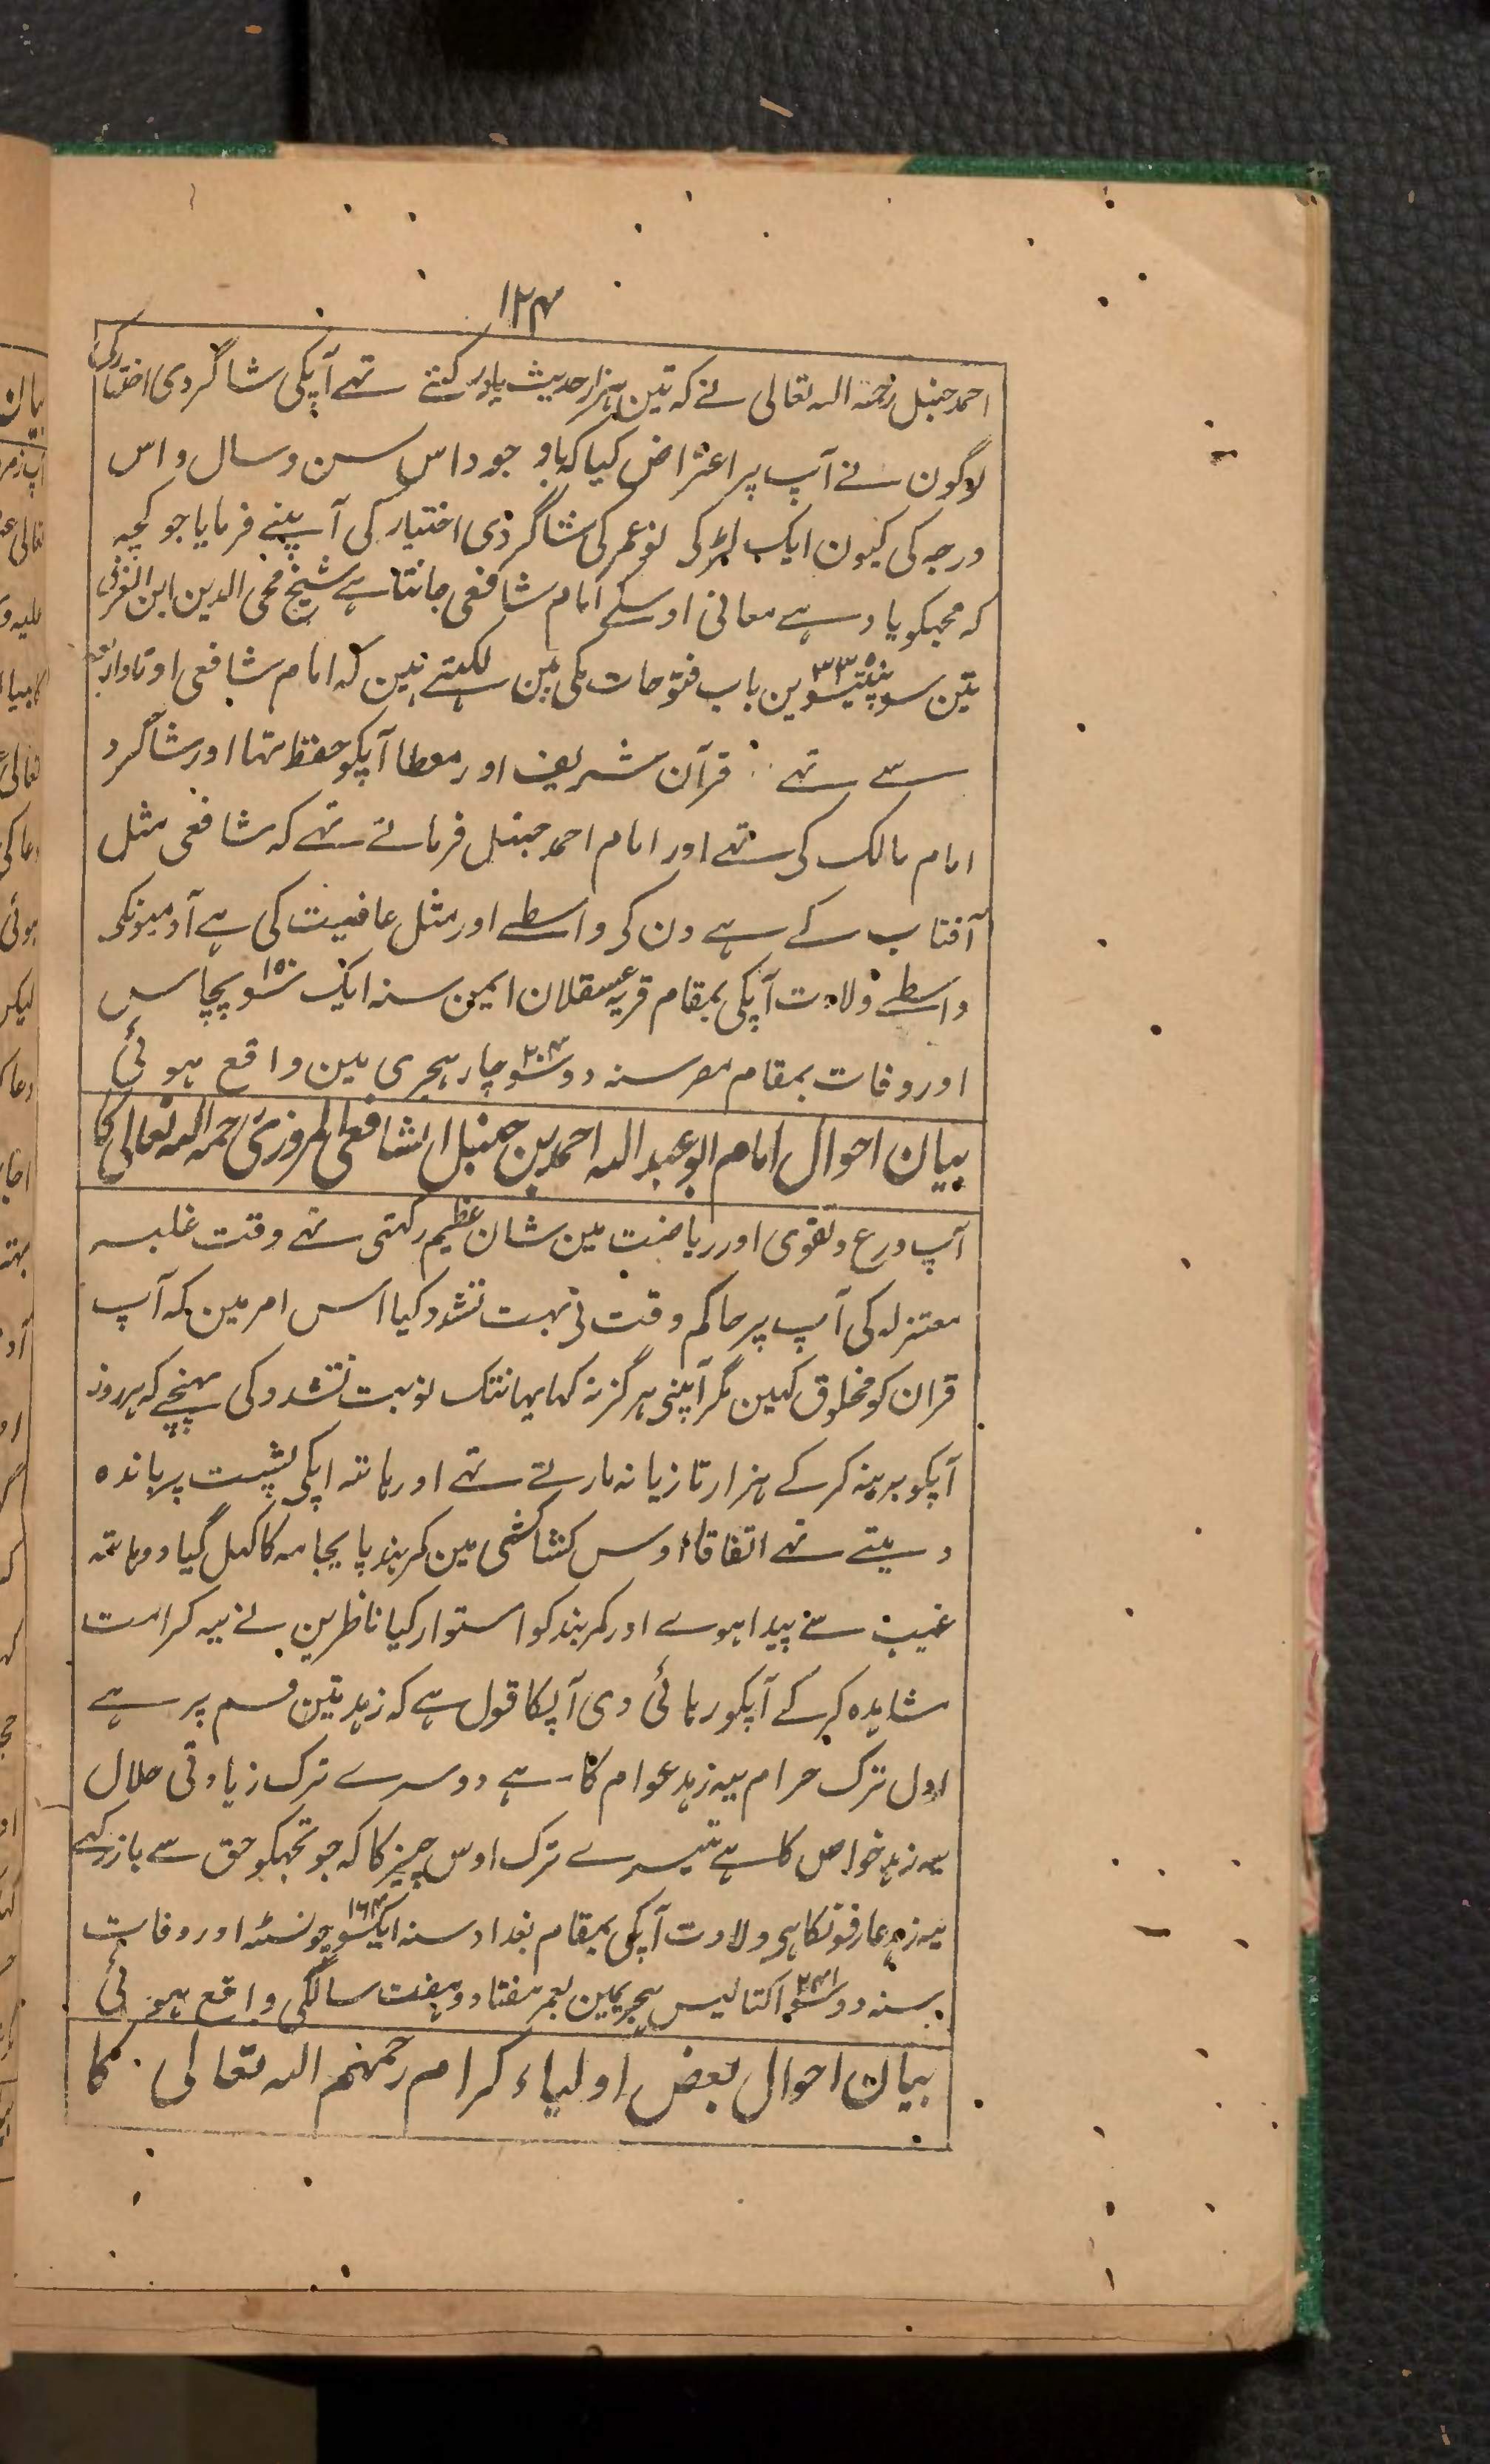 ۱۲۴
احمد حنبل رحمۃ اللہ تعالی نے کہ تین ہزار حدیث یاد رکہتے تہے آپکی شاگردی اختیار کی
لاگون نے آپ پر اعتراض کیا کہ باوجود اس سن و سال و اس
درجہ کی کیون ایک لڑکی نو عمر کی شاگردی اختیار کی آپنے فرمایا جو کچہہ
کہ مجہکو یاد ہے معانی اوسکے امام شافعی جانتا ہے شیخ محی الدین ابن العربی
تین سو پینتیسوین ۳۳۵ باب فتوحات مکی مین لکہتے ہین کہ امام شافعی اوتاد اربعہ
سے تہے قرآن شریف اور معطا آپکو حفظ تہا اور شاگرد
امام مالک کی تہے اور امام احمد حنبل فرماتے تہے کہ شافعی مثل
آفتاب کے ہے دن کی واسطے اور مثل عافیت کی ہے آدمیونکی
واسطے ولادت آپکی بمقام قریہ عسقلان ایمین سنہ ایک سو پچاس ۱۵۰
اور وفات بمقام مصر سنہ دو سو چار ۲۰۴ ہجری مین واقع ہوئی
بیان احوال امام ابو عبد اللہ احمد بن حنبل الشافعی المروزی رحمہ اللہ تعالی کا
آپ ورع و تقوی اور ریاضت مین شان عظیم رکہتی تہے وقت غلبہ
معتزلہ کی آپ پر حاکم وقت نی بہت تشدد کیا اس امر مین کہ آپ
قران کو مخلوق کہین مگر آپنی ہرگز نہ کہا یہانتک نوبت تشدد کی پہنچے کہ ہر روز
آپکو برہنہ کر کے ہزار تازیانہ مارتے تہے اور ہاتہ اپکی پشت پر باندہ
دیتے تہے اتفاقا اوس کشاکشی مین کمربند پایجامہ کا کہل گیا دو ہاتہہ
غیب سے پیدا ہوے اور کمربند کو استوار کیا ناظرین نے یہ کرامت
مشاہدہ کر کے آپکو رہائی دی آپکا قول ہے کہ زہد تین قسم پر ہے
اول ترک حرام یہ زہد عوام کا ہے دوسرے ترک زیادتی حلال
یہ زہد خواص کا ہے تیسرے ترک اوس چیز کا کہ جو تجہکو حق سے باز رکہے
یہ زہد عارفونکا ہی ولادت آپکی بمقام بغداد سنہ ایکسو چونسٹہ ۱۶۴ اور وفات
بسنہ دو سو اکتالیس ۲۴۱ ہجریمین بعمر ہفتاد و ہفت سالگی واقع ہوئی
بیان احوال بعض اولیاء کرام رحمہم اللہ تعالی کا